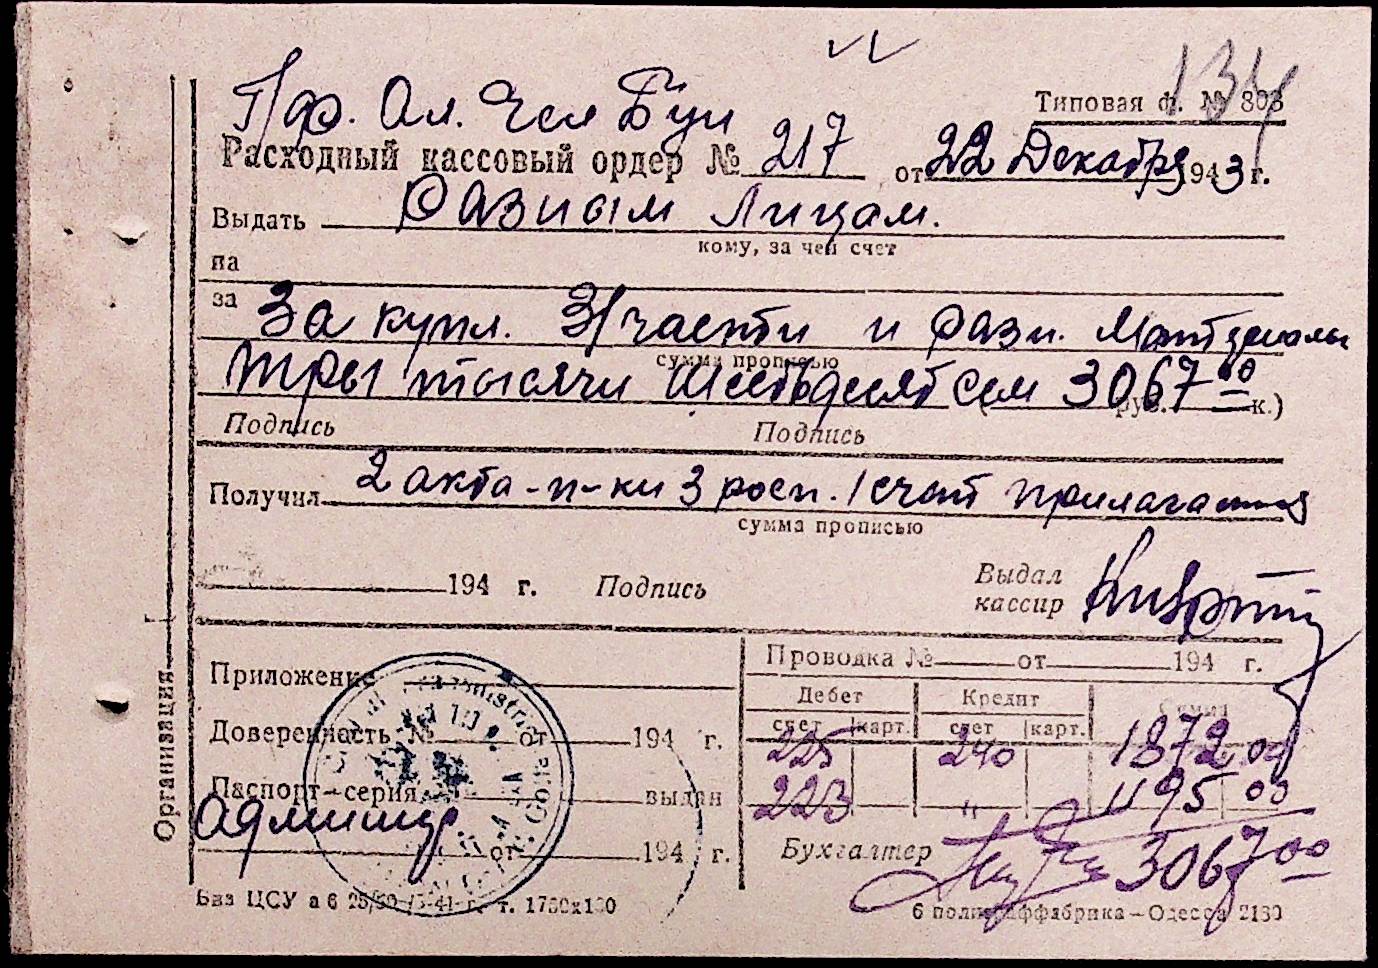 134
Типовая ф. № 803
Расходный кассовый ордер № 217 от 22 Декабря 1943 г.
Выдать Разным Лицам.
кому, за чей счет
на
за За купл. З/части и разн. Материалы
сумма прописью
три тысячи шестьдесят сем 3067 00
руб. к.)
Подпись Подпись
Получил 2 акта-п-ки 3 росп. 1 счет прилагаются
сумма прописью
194 г. Подпись Выдал
кассир
Организация
Приложение
Проводка № от 194 г.
Дебет Кредит Сумма
счет карт. счет карт.
Доверенность № от 194 г.
225 240 1872 00
Паспорт—серия выдан
223 " 1195 00
от 194 г.
Бухгалтер 3067 00
т. 1750x100
6 полиграффабрика—Одесса 2180